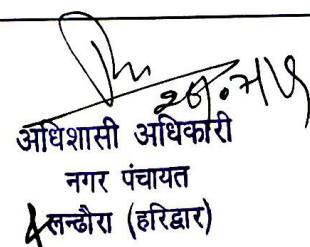 अधिशासी अधिकारी
नगर पंचायत
लन्ढौरा (हरिद्वार)